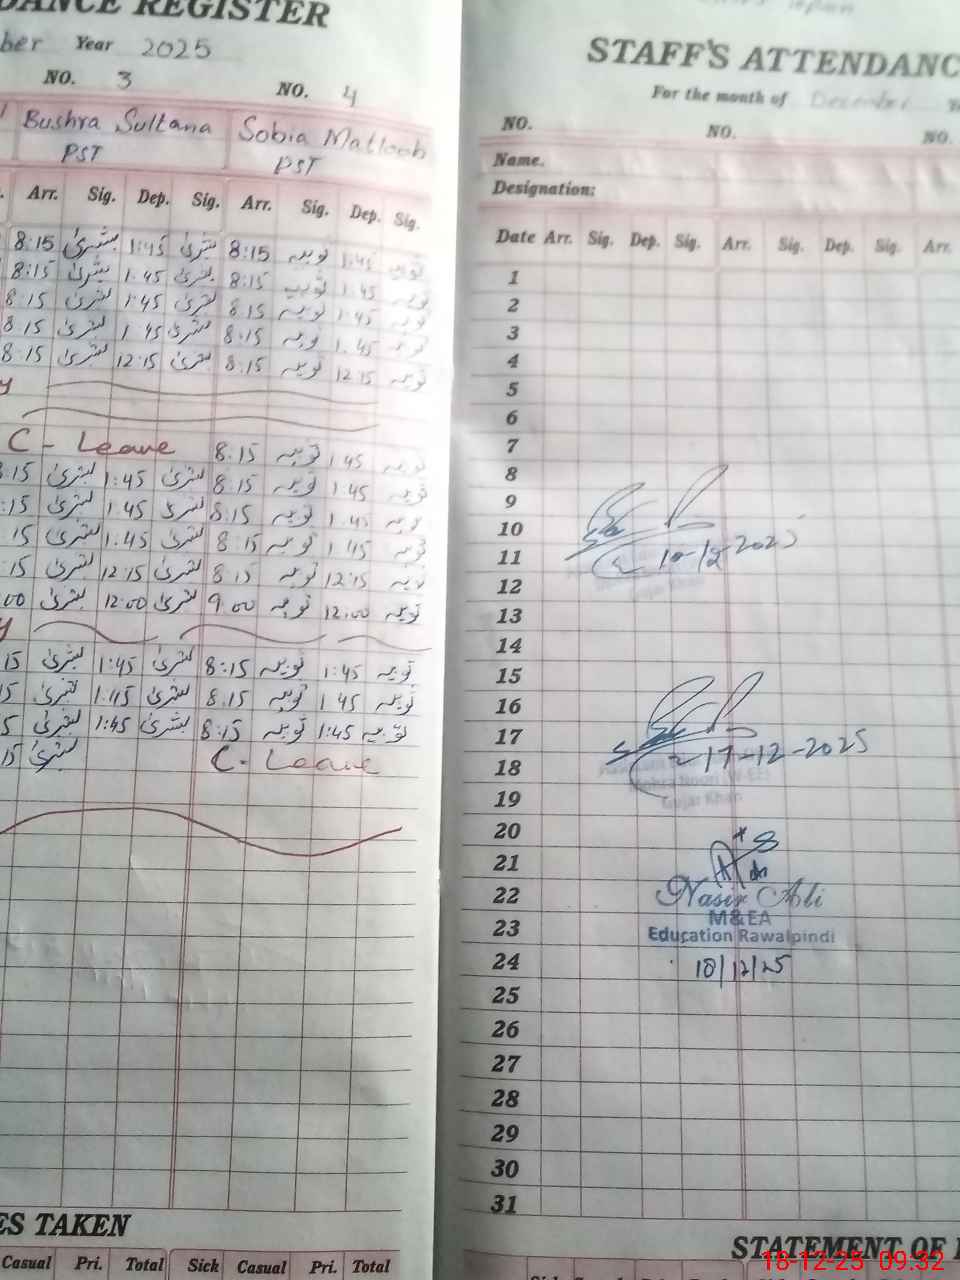 DANCE REGISTER
ber Year 2025
NO. 3 NO. 4
Bushra Sultana Sobia Matloob
PST PST
Arr. Sig. Dep. Sig. Arr. Sig. Dep. Sig.
8:15 بشریٰ 1:45 بشریٰ 8:15 ثوبیہ 1:45 ثوبیہ
8:15 بشریٰ 1:45 بشریٰ 8:15 ثوبیہ 1:45 ثوبیہ
8:15 بشریٰ 1:45 بشریٰ 8:15 ثوبیہ 1:45 ثوبیہ
8:15 بشریٰ 1:45 بشریٰ 8:15 ثوبیہ 1:45 ثوبیہ
8:15 بشریٰ 12:15 بشریٰ 8:15 ثوبیہ 12:15 ثوبیہ
y
C - Leave 8:15 ثوبیہ 1:45 ثوبیہ
8:15 بشریٰ 1:45 بشریٰ 8:15 ثوبیہ 1:45 ثوبیہ
:15 بشریٰ 1:45 بشریٰ 8:15 ثوبیہ 1:45 ثوبیہ
15 بشریٰ 1:45 بشریٰ 8:15 ثوبیہ 1:45 ثوبیہ
:15 بشریٰ 12:15 بشریٰ 8:15 ثوبیہ 12:15 ثوبیہ
00 بشریٰ 12:00 بشریٰ 9:00 ثوبیہ 12:00 ثوبیہ
y
15 بشریٰ 1:45 بشریٰ 8:15 ثوبیہ 1:45 ثوبیہ
15 بشریٰ 1:45 بشریٰ 8:15 ثوبیہ 1:45 ثوبیہ
5 بشریٰ 1:45 بشریٰ 8:15 ثوبیہ 1:45 ثوبیہ
15 بشریٰ C. Leave
ES TAKEN
Casual Pri. Total Sick Casual Pri. Total
STAFF'S ATTENDANC
For the month of December
NO. NO. NO.
Name.
Designation:
Date Arr. Sig. Dep. Sig. Arr. Sig. Dep. Sig. Arr.
1
2
3
4
5
6
7
8
9
10
11 10-12-2025
12
13
14
15
16
17 17-12-2025
18
19
Gujar Khan
20
21
22 Nasir Ali
M&EA
23 Education Rawalpindi
24 18/12/25
25
26
27
28
29
30
31
STATEMENT OF
18-12-25 09:32